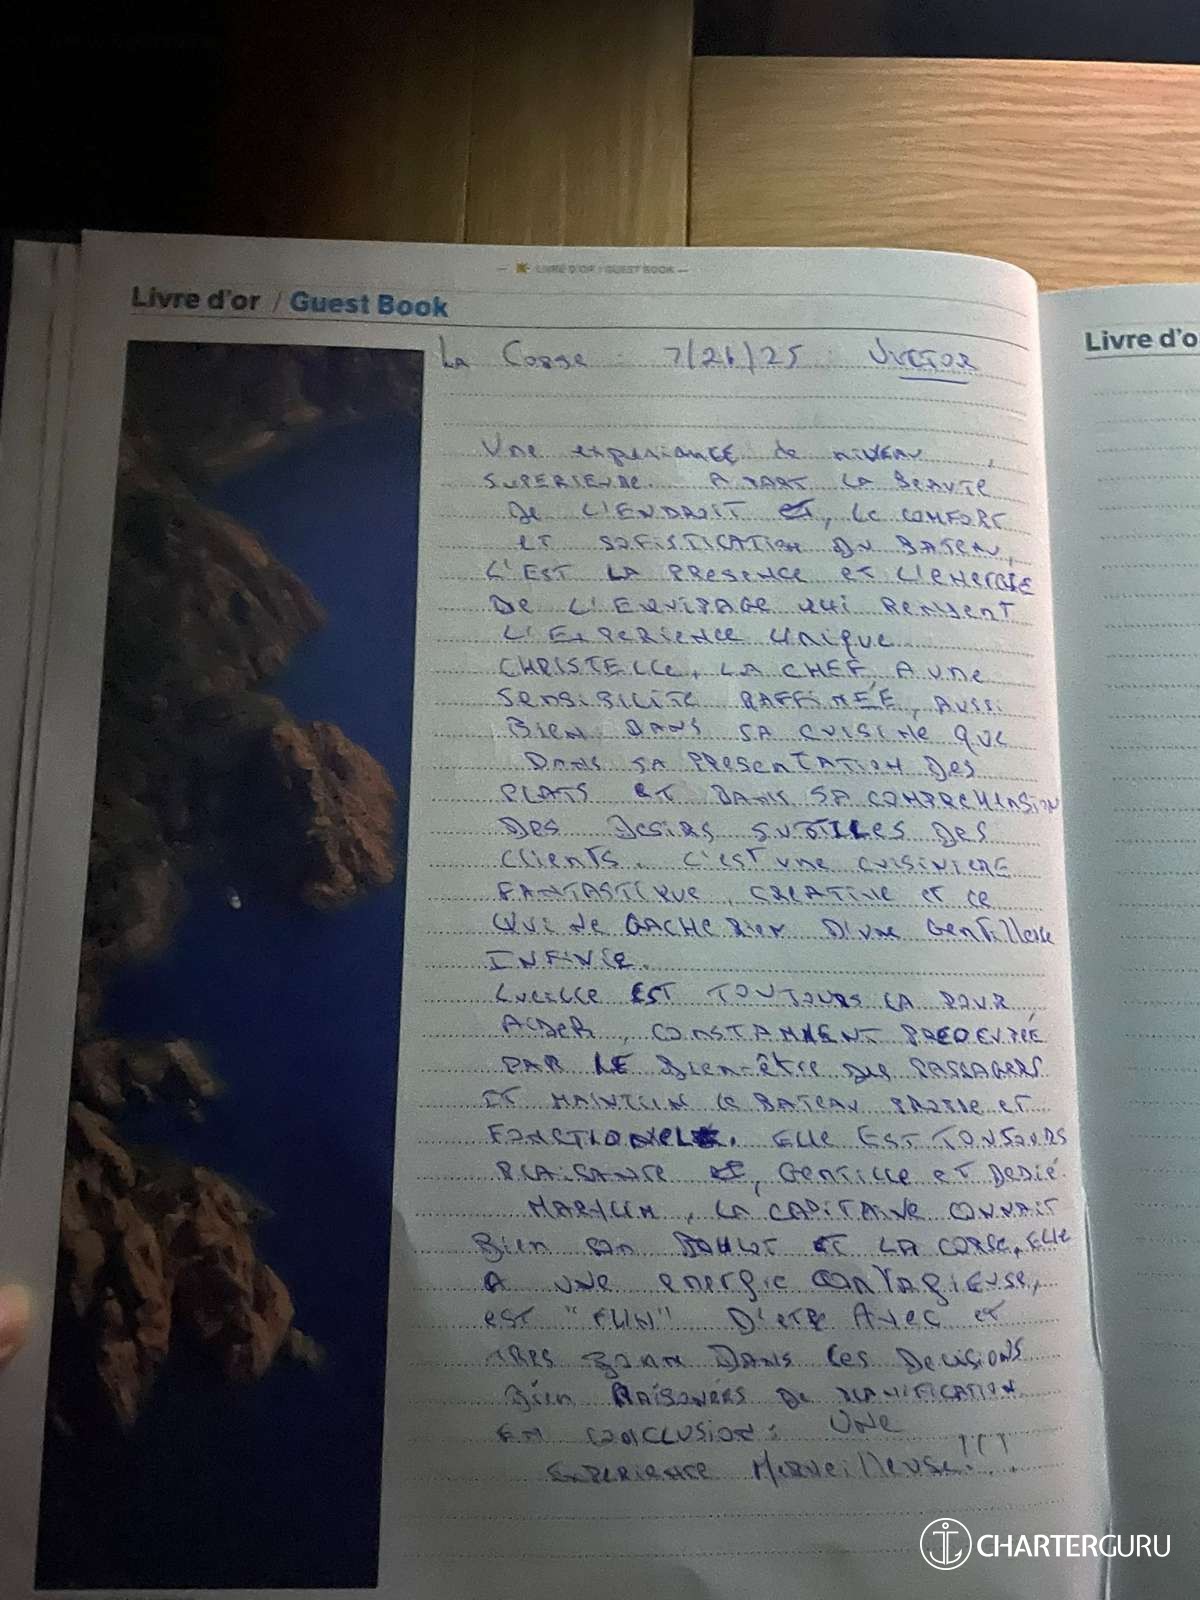 LIVRE D'OR / GUEST BOOK
Livre d'or / Guest Book
Livre d'o
La Corse : 7/26/25 :
Une experiance de niveau
superieure. A part la beaute
de l'endroit et, le comfort
et sofistication du bateau,
c'est la presence et l'energie
de l'equipage qui rendent
l'experience unique
Christelle, la chef, a une
sensibilité raffinée, aussi
bien dans sa cuisine que
dans sa presentation des
plats et dans sa comprehension
des desirs subtiles des
clients. C'est une cuisiniere
fantastique, creative et ce
qui ne gache rien d'une gentillesse
infinie.
Lucille est toujours la pour
aider, constamment preocupé
par le bien-être des passagers
et maintien le bateau propre et
fonctionel. Elle est toujours
plaisante et, gentille et dedié.
Marylin, la capitaine connait
bien son boulot et la Corse, elle
a une energie contagieuse,
est "fun" d'etre avec et
tres bonne dans les decisions
bien raisonés de planification
en conclusion : une
experience merveilleuse!!!
CHARTERGURU